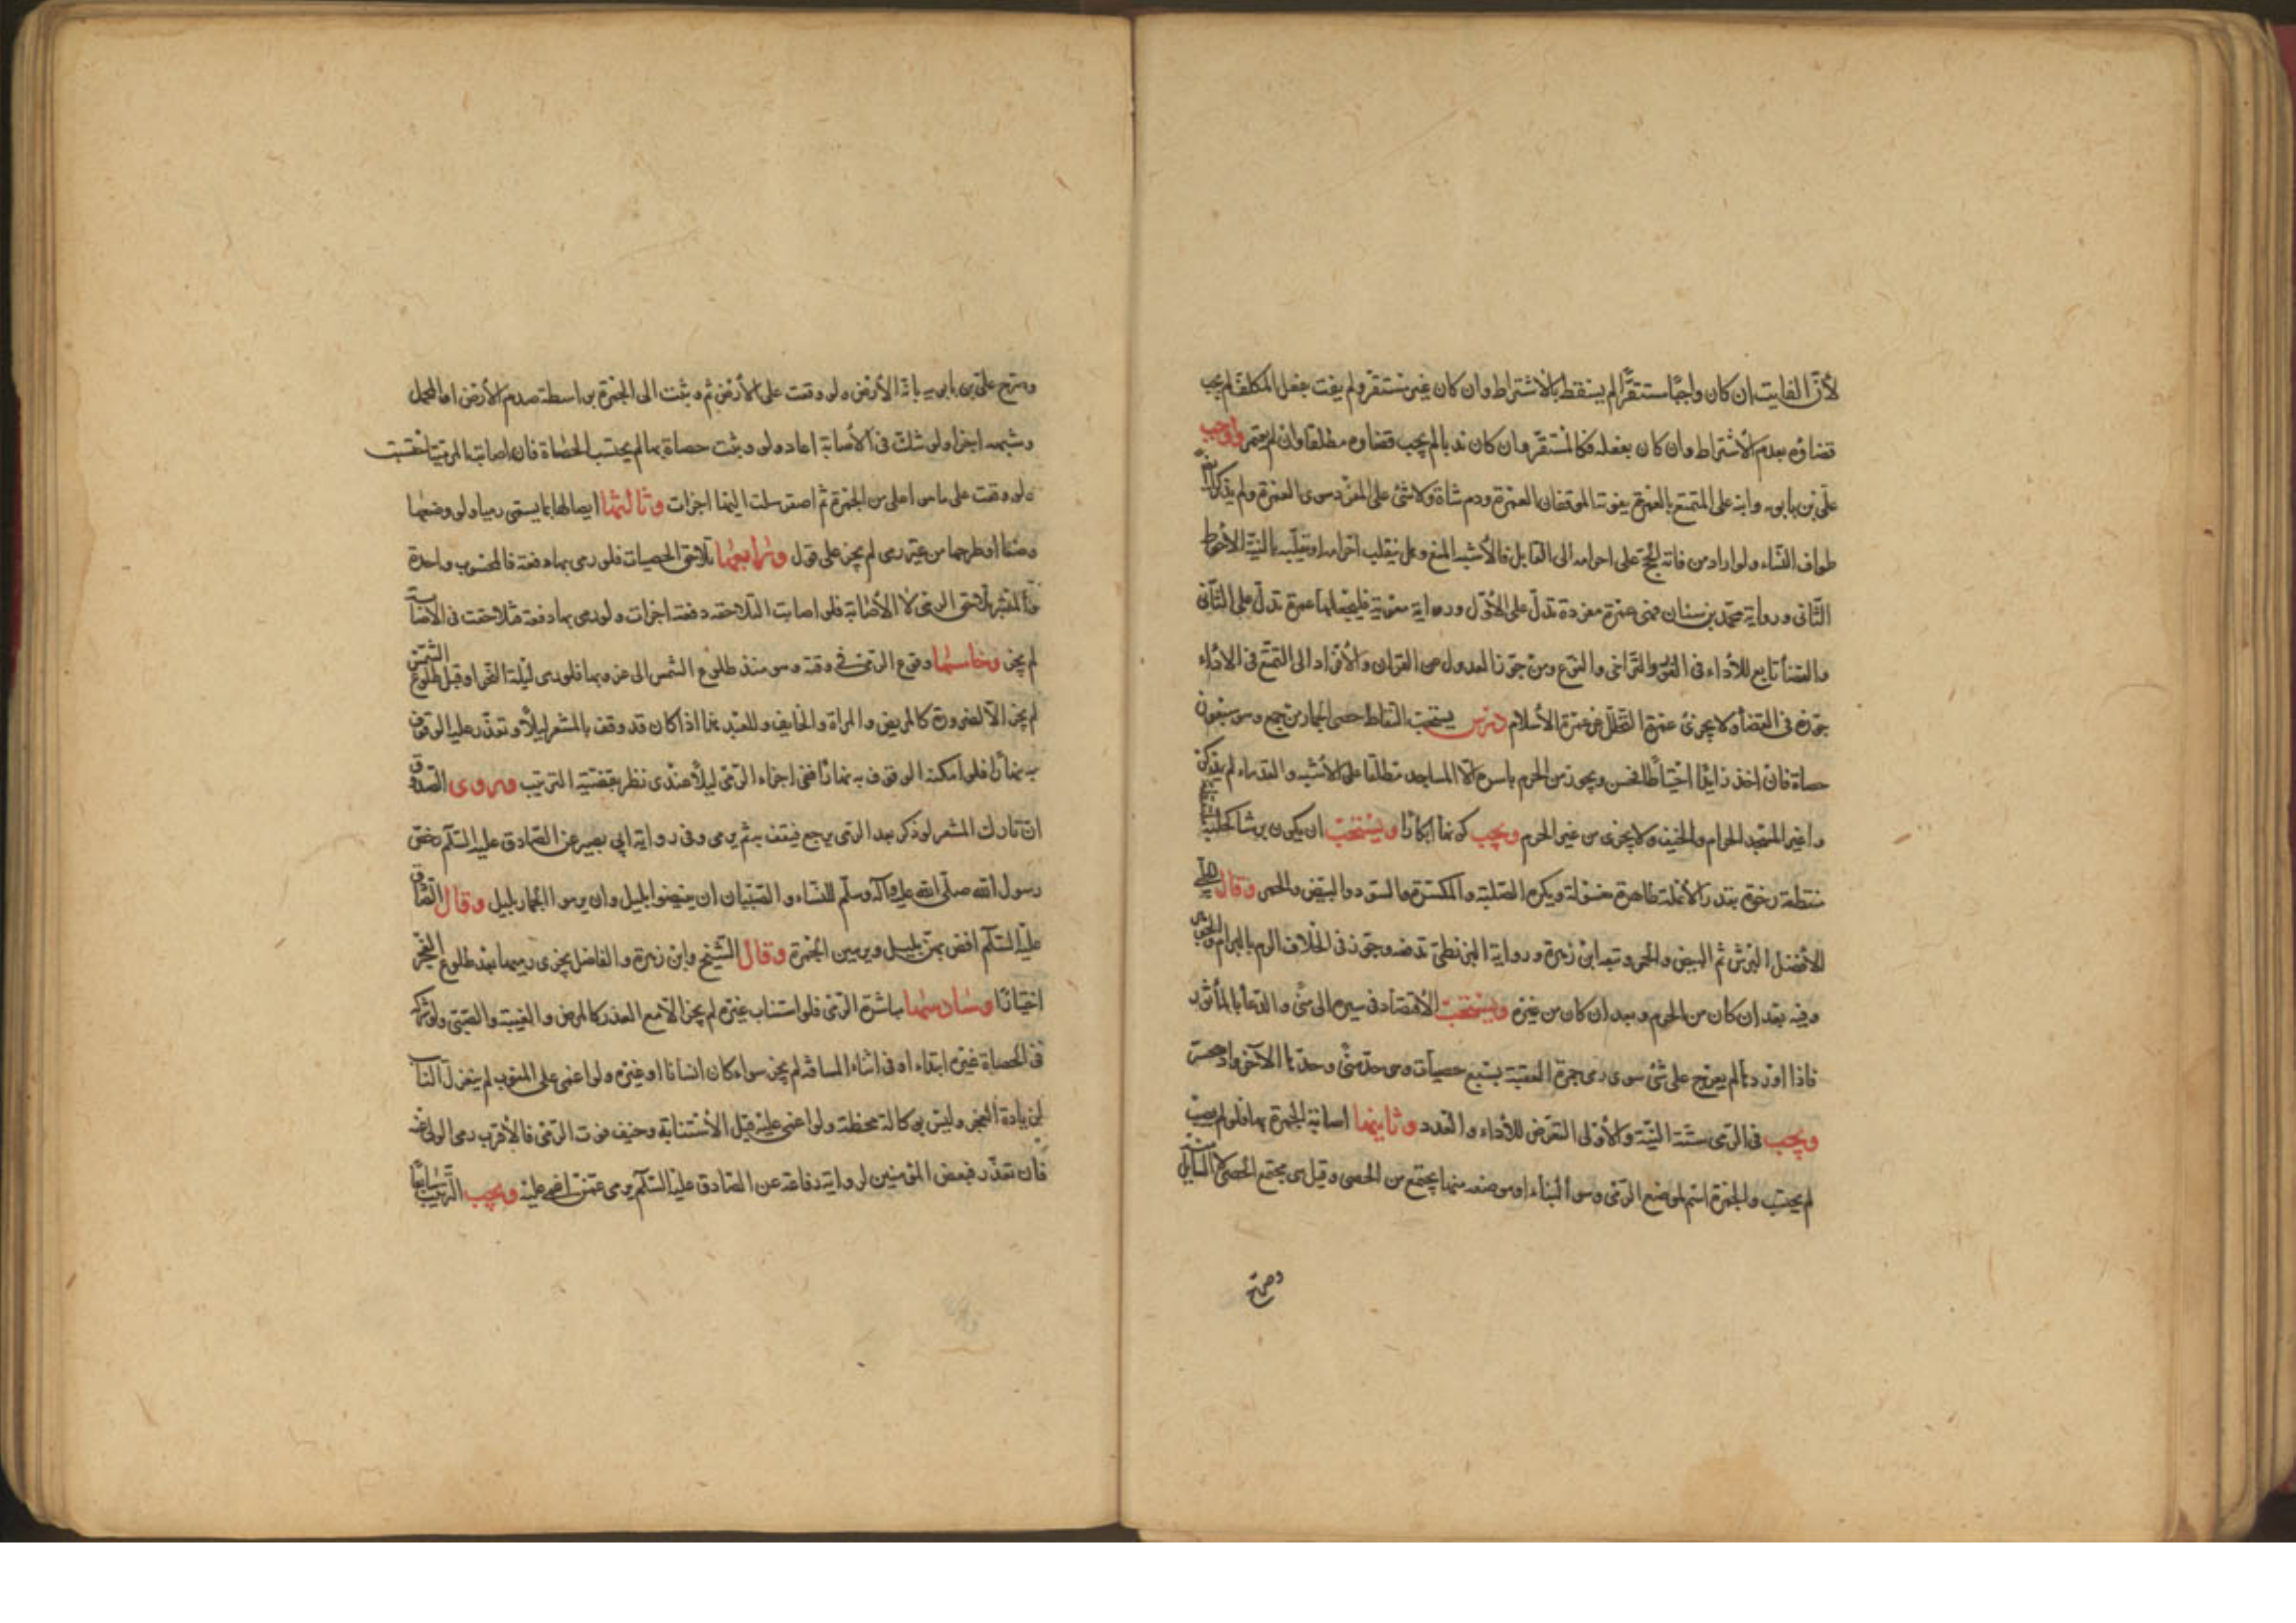 لأنّ الفايت إن كان واجبًا مستقرًّا لم يسقط بالاشتراط وان كان غير مستقر ولم يفت بفعل المكلف لم يجب
قضاؤه بعدم الاشتراط وان كان بفعله فكالمستقرّ وان كان ندبا لم يجب قضاؤه مطلقا وان لم يعتمر واوجب
علي بن بابويه وابنه على المتمتع بالعمرة يفوته الموقفان العمرة ودم شاة ولا شئ على المفرد سوى العمرة ولم يذكرا
طواف النساء ولو اراد من فاته الحج على احرامه الى القابل فالأشبه المنع وهل ينقلب احرامه او يقلبه بالنية الأحوط
الثاني ورواية محمد بن سنان فهي عمرة مفردة تدلّ على الأوّل ورواية معوية فليجعلها عمرة تدلّ على الثاني
والقضأ تابع للأداء في الفور والتراخي والنوع ومن جوّز العدول من القران والأفراد الى التمتع في الأداء
جوّزه في القضأ ولا يجزئ عمرة التحلل عن عمرة الأسلام درس يستحب التقاط حصى الجمار من جمع وهو سبعون
حصاة فان اخذ زايدًا احتياطًا فحسن ويجوز من الحرم باسره الّا المساجد مطلقا على الأشبه والقدماء لم يذكروا
غير المسجد الحرام والخيف ولا يجزى من غير الحرم ويجب كونها ابكارًا ويستحب ان يكون برشا كحلية
منقطة رخوة بقدر الأنملة طاهرة مغسولة ويكره الصلبة والمكسرة والسود والبيض والحمر وقال
الأفضل البرش ثم البيض والحمر وتبعه ابن زهرة ورواية البزنطي تدفعه وجوّز في الخلاف الرمي بالبرام
وفيه بعد ان كان من الحرم وبعد ان كان من غيره ويستحب الأقتصاد في سيره الى منى والدعأ بالمأثور
فاذا اورد لم يعرّج على شئ سوى رمي جمرة العقبة بسبع حصيات وهي حدّ منى وحدّها الآخر وادي محسر
ويجب في الرمي ستّة النيّة والأولى التعرّض للأداء والعدد وثانيها اصابة الجمرة بها فلو لم يصب
لم يحتسب والجمرة اسم لموضع الرمي وهو البناء او موضعه مما يجتمع من الحصى وقيل هي مجتمع الحصى لا السايل
وصرّح
وصرّح علي بن بابويه بانه الأرض ولو وقعت على الأرض ثم وثبت الى الجمرة بواسطة صدم الأرض او المحمل
وشبهه اجزا ولو شك في الأصابة اعاد ولو وثبت حصاة بها لم يحتسب الحصاة فان اصابت المرمية احتسبت
ولو وقعت على ما هو اعلى من الجمرة ثم استرسلت اليها اجزات وثالثها ايصالها بما يسمى رميا ولو وضعها
وضعا او طرحها من غير رمى لم يجز على قول ورابعها تلاحق الحصيات فلو رمى بها دفعة فالمحسوب واحدة
والمعتبر تلاحق الرمي لا الأصابة فلو اصابت المتلاحقه دفعة اجزات ولو رمى بها دفعة فتلاحقت في الأصابة
لم يجز وخامسها وقوع الرمي في وقته وهو منذ طلوع الشمس الى غروبها فلو رمى ليلة النحر او قبل طلوع الشمس
لم يجز الا لضرورة كالمريض والمرأة والخايف وللعبد اما اذا كان قد وقف بالمشعر ليلًا وتعذّر عليه الوقوف
به نهارًا فلو امكنه الوقوف به نهارًا ففي اجزاء الرمي ليلًا عندى نظر بقضية الترتيب وروى الصدوق
ان تارك المشعر لو ذكر بعد الرمي يرجع فيقف به ثم يرمى وفي رواية ابي بصير عن الصادق عليه السلام رخص
رسول الله صلى الله عليه وآله وسلم للنساء والصبيان ان يفيضوا بليل وان يرموا الجمار بليل وقال الصادق
عليه السلام افض بهن بليل ويرمين الجمرة وقال الشيخ وابن زهرة والفاضل يجزى رميها بعد طلوع الفجر
اختيارًا وسادسها مباشرة الرمي فلو استناب غيره لم يجز الا مع العذر كالمرض والغيبة والصبى ولو شركه
في الحصاة غيره ابتداء او في اثناء المسافة لم يجز سواء كان انسانا او غيره ولو اغمى على المنوب لم ينعزل النائب
لزيادة العجز وليس بوكالة محضة ولو اغمى عليه قبل الأستنابة وخيف فوت الرمي فالأقرب رمى الولى عنه
فان تعذّر فبعض المؤمنين لرواية رفاعة عن الصادق عليه السلام يرمى عمن اغمى عليه ويجب الترتيب